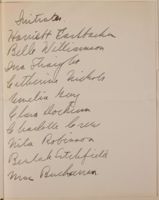 Initiates
Harriett
Belle Williamson
Ina
Catherine Nichols
Amelia King
Clara Dockum
Charlotte Cress
Nila Robinson
Beulah Critchfield
Mrs Buchanan